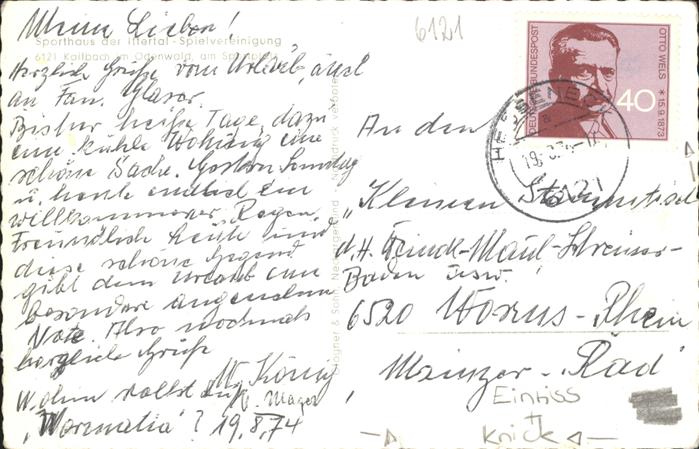 Meine Lieben!
Sporthaus der Ittertal-Spielvereinigung
6121 Kailbach im Odenwald, am Sportplatz
Herzliche Grüße vom Urlaub, auch
an Fam. Glaser.
Bisher heiße Tage, dazu
eine kühle Wohnung eine
schöne Sache. Gestern Sonntag
u. heute endlich ein
willkommener Regen.
Freundliche Leute und
diese schöne Gegend
gibt dem Urlaub eine
besondere angenehme
Note. Also nochmals
herzliche Grüße
W. König
Mager
"Wormatia"? 19.8.74
6121
DEUTSCHE BUNDESPOST
OTTO WELS * 15.9.1873
40
6121
An den
"Kleinen Stammtisch
d. H.
6520 Worms-Rhein
"Mainzer-Rad"
Einriss
+
Knick